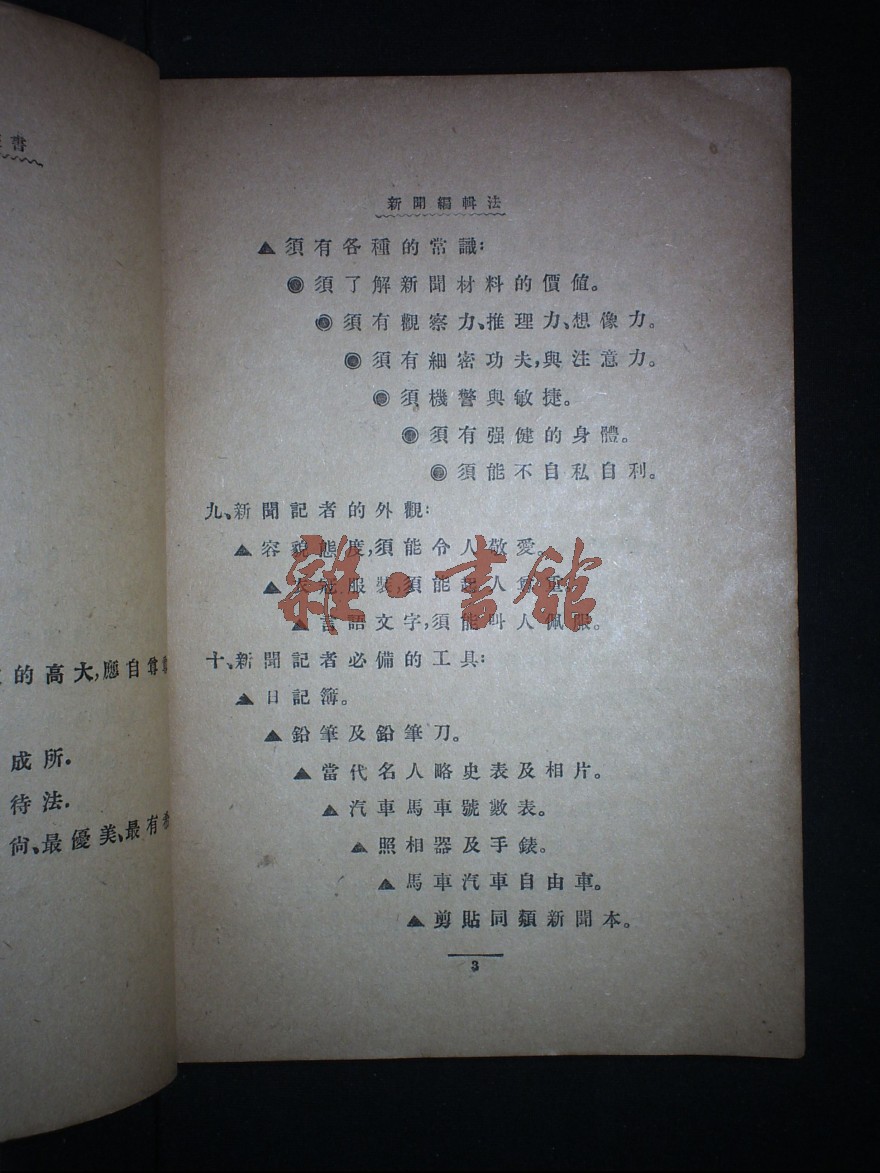 書
的高大,應自尊
成所.
待法.
尚、最優美、最有
新聞編輯法
▲須有各種的常識:
◉須了解新聞材料的價值。
◉須有觀察力、推理力、想像力。
◉須有細密功夫,與注意力。
◉須機警與敏捷。
◉須有强健的身體。
◉須能不自私自利。
九、新聞記者的外觀:
▲容貌態度,須能令人敬愛。
▲衣冠服裝,須能起人尊重。
▲言語文字,須能叫人佩服。
十、新聞記者必備的工具:
▲日記簿。
▲鉛筆及鉛筆刀。
▲當代名人略史表及相片。
▲汽車馬車號數表。
▲照相器及手錶。
▲馬車汽車自由車。
▲剪貼同類新聞本。
3
雜·書館